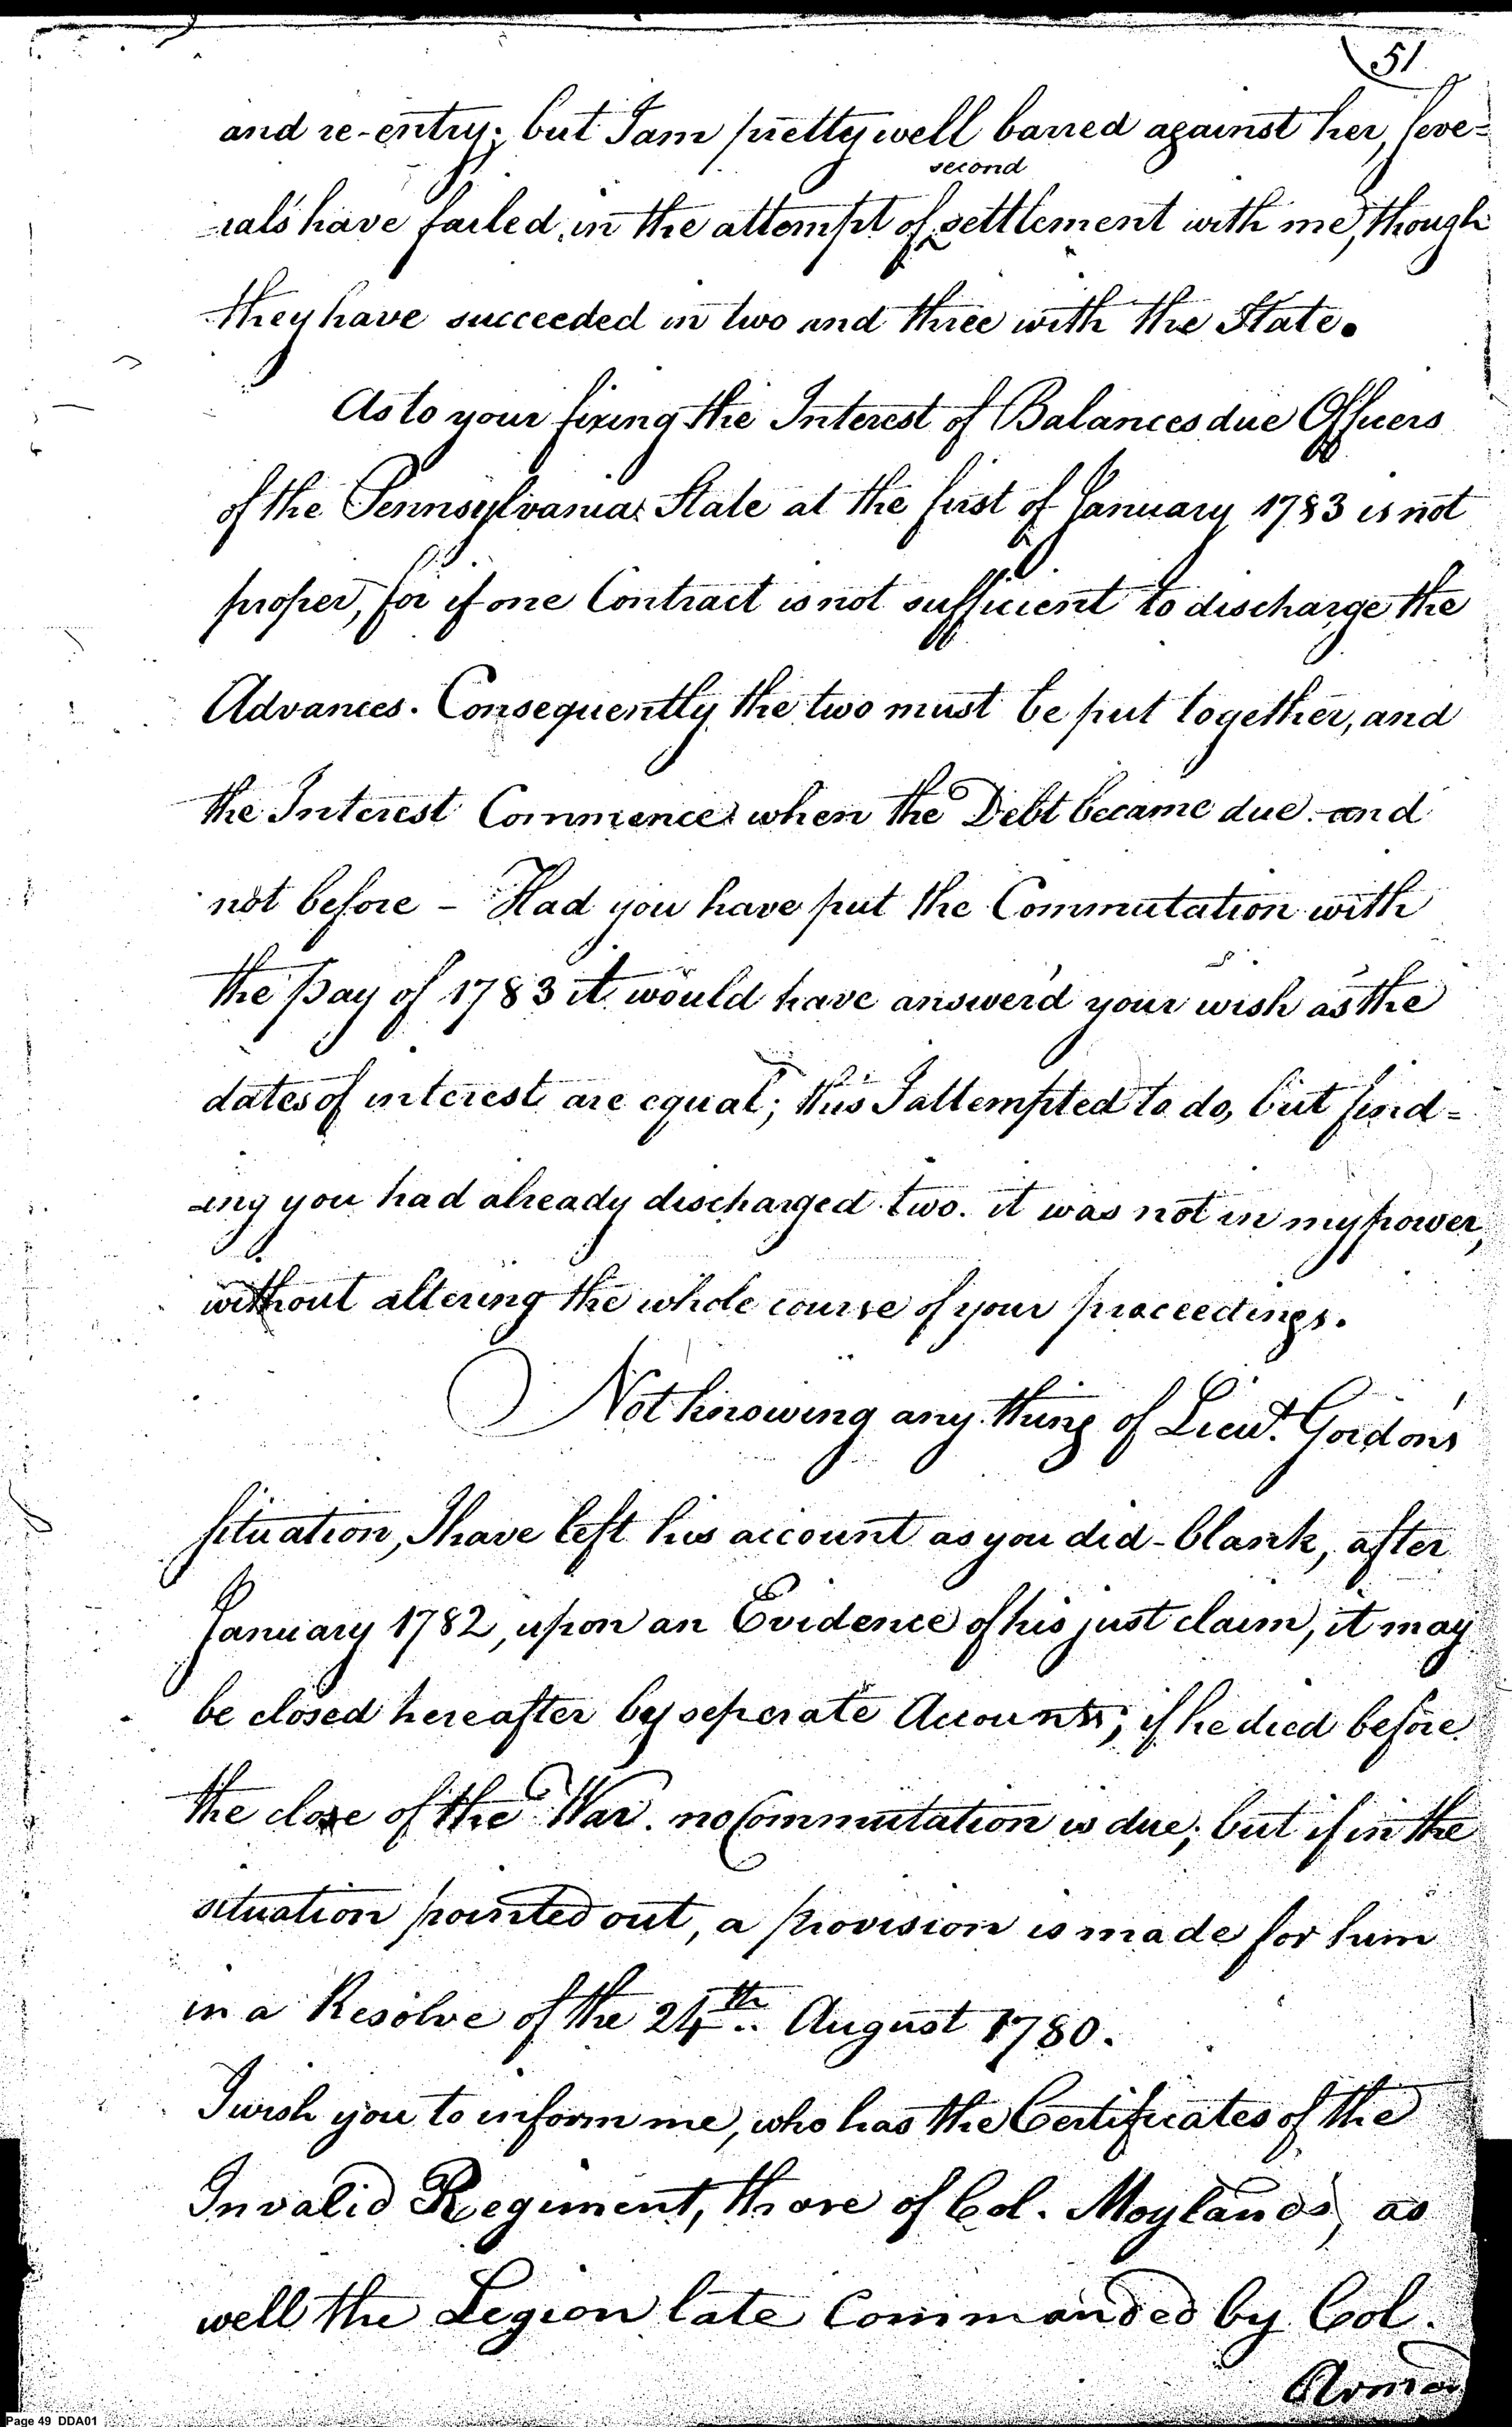 51
and re-entry; but I am pretty well barred against her, seve=
second
=rals have failed in the attempt of settlement with me, though
they have succeeded in two and three with the State.
As to your fixing the Interest of Balances due Officers
of the Pennsylvania State at the first of January 1783 is not
proper, for if one Contract is not sufficient to discharge the
Advances. Consequently the two must be put together, and
the Interest Commence when the Debt became due and
not before - Had you have put the Commutation with
the pay of 1783 it would have answer'd your wish as the
dates of interest are equal; this I attempted to do, but find=
=ing you had already discharged two. it was not in my power,
without altering the whole course of your proceedings.
Not knowing any thing of Lieut. Gordon's
situation, I have left his account as you did - blank, after
January 1782, upon an Evidence of his just claim, it may
be closed hereafter by seperate Accounts; if he died before
the close of the War. no Commutation is due; but if in the
situation pointed out, a provision is made for him
in a Resolve of the 24th August 1780.
I wish you to inform me, who has the Certificates of the
Invalid Regiment, those of Col. Moylands, as
well the Legion late Commanded by Col.
Armand
Page 49 DDA01